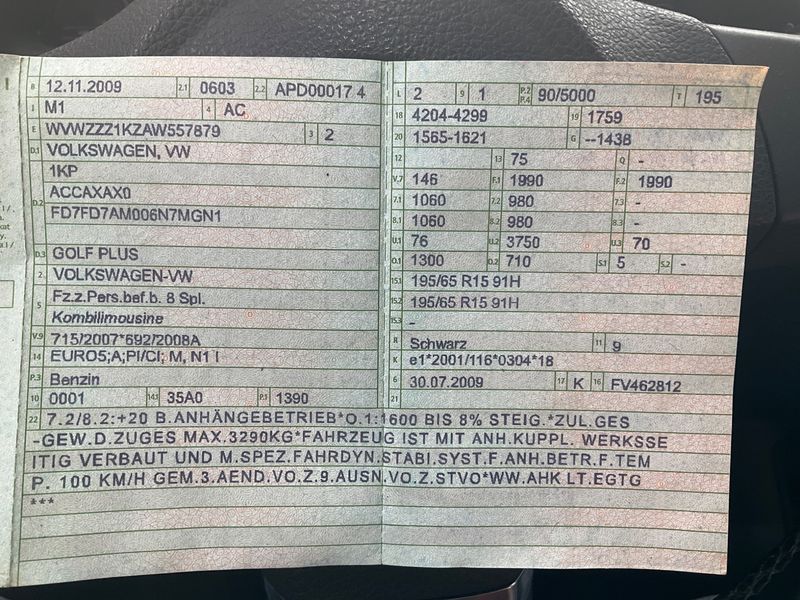 B 12.11.2009 2.1 0603 2.2 APD00017 4
J M1 4 AC
E WVWZZZ1KZAW557879 3 2
D.1 VOLKSWAGEN, VW
1KP
D.2 ACCAXAX0
FD7FD7AM006N7MGN1
D.3 GOLF PLUS
2 VOLKSWAGEN-VW
5 Fz.z.Pers.bef.b. 8 Spl.
Kombilimousine
V.9 715/2007*692/2008A
14 EURO5;A;PI/CI; M, N1 I
P.3 Benzin
10 0001 14.1 35A0 P.1 1390
L 2 9 1 P.2 P.4 90/5000 T 195
18 4204-4299 19 1759
20 1565-1621 G --1438
12 13 75 Q -
V.7 146 F.1 1990 F.2 1990
7.1 1060 7.2 980 7.3 -
8.1 1060 8.2 980 8.3 -
U.1 76 U.2 3750 U.3 70
O.1 1300 O.2 710 S.1 5 S.2 -
15.1 195/65 R15 91H
15.2 195/65 R15 91H
15.3 -
R Schwarz 11 9
K e1*2001/116*0304*18
6 30.07.2009 17 K 16 FV462812
21
22 7.2/8.2:+20 B.ANHÄNGEBETRIEB*O.1:1600 BIS 8% STEIG.*ZUL.GES
-GEW.D.ZUGES MAX.3290KG*FAHRZEUG IST MIT ANH.KUPPL. WERKSSE
ITIG VERBAUT UND M.SPEZ.FAHRDYN.STABI.SYST.F.ANH.BETR.F.TEM
P. 100 KM/H GEM.3.AEND.VO.Z.9.AUSN.VO.Z.STVO*WW.AHK LT.EGTG
***